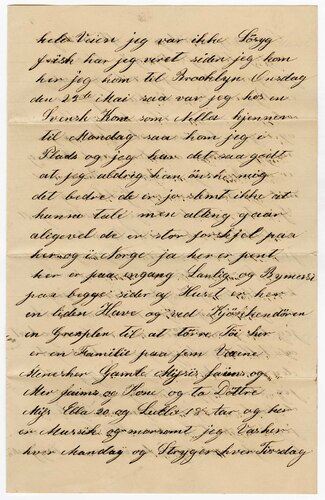 hele Veien jeg var ikke Søsyg
frisk har jeg veret siden jeg kom
her jeg kom til Brooklyn Onsdag
den 22de Mai saa var jeg hos en
Svensk Kone som Nelles kjenner
til Mandag saa kom jeg i
Plads og jeg har det saa godt
at jeg aldrig kan önske mig
det bedre de er jo slemt ikke at
kunne tale men alting gaar
alegevel de er stor forskjel paa
her og i Norge ja her er pent
her er paa engang Landlig og
paa begge sider af Huset er her
en liden Have og ved Kjökkendören
en Gresplen til at törre Töi her
er en Familie paa fem
Mennesker Gamle Misis Jaims og
Mer Jaims og Kone og to Döttre
Miss Ella 20 og 18 Aar og her
er Mussik og morsomt jeg Vasker
hver Mandag og Stryger hver Tirsdag